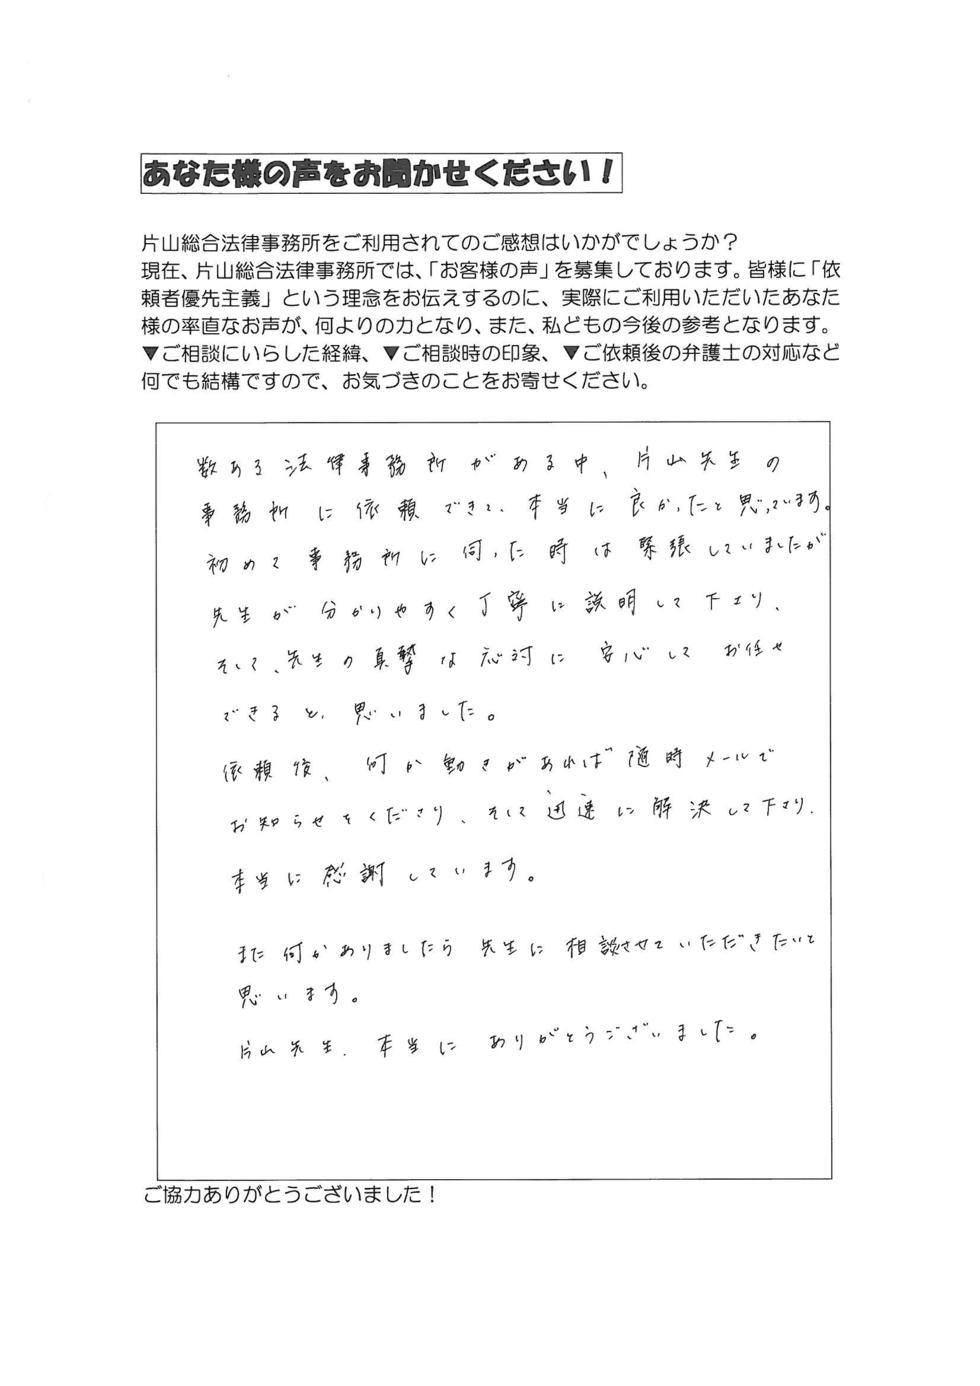 あなた様の声をお聞かせください！
片山総合法律事務所をご利用されてのご感想はいかがでしょうか？
現在、片山総合法律事務所では、「お客様の声」を募集しております。皆様に「依
頼者優先主義」という理念をお伝えするのに、実際にご利用いただいたあなた
様の率直なお声が、何よりの力となり、また、私どもの今後の参考となります。
▼ご相談にいらした経緯、▼ご相談時の印象、▼ご依頼後の弁護士の対応など
何でも結構ですので、お気づきのことをお寄せください。
数ある法律事務所がある中、片山先生の
事務所に依頼できて、本当に良かったと思っています。
初めて事務所に伺った時は緊張していましたが
先生が分かりやすく丁寧に説明して下さり、
そして、先生の真摯な応対に安心してお任せ
できると、思いました。
依頼後、何か動きがあれば随時メールで
お知らせをくださり、そして迅速に解決して下さり、
本当に感謝しています。
また何かありましたら先生に相談させていただきたいと
思います。
片山先生、本当にありがとうございました。
ご協力ありがとうございました！